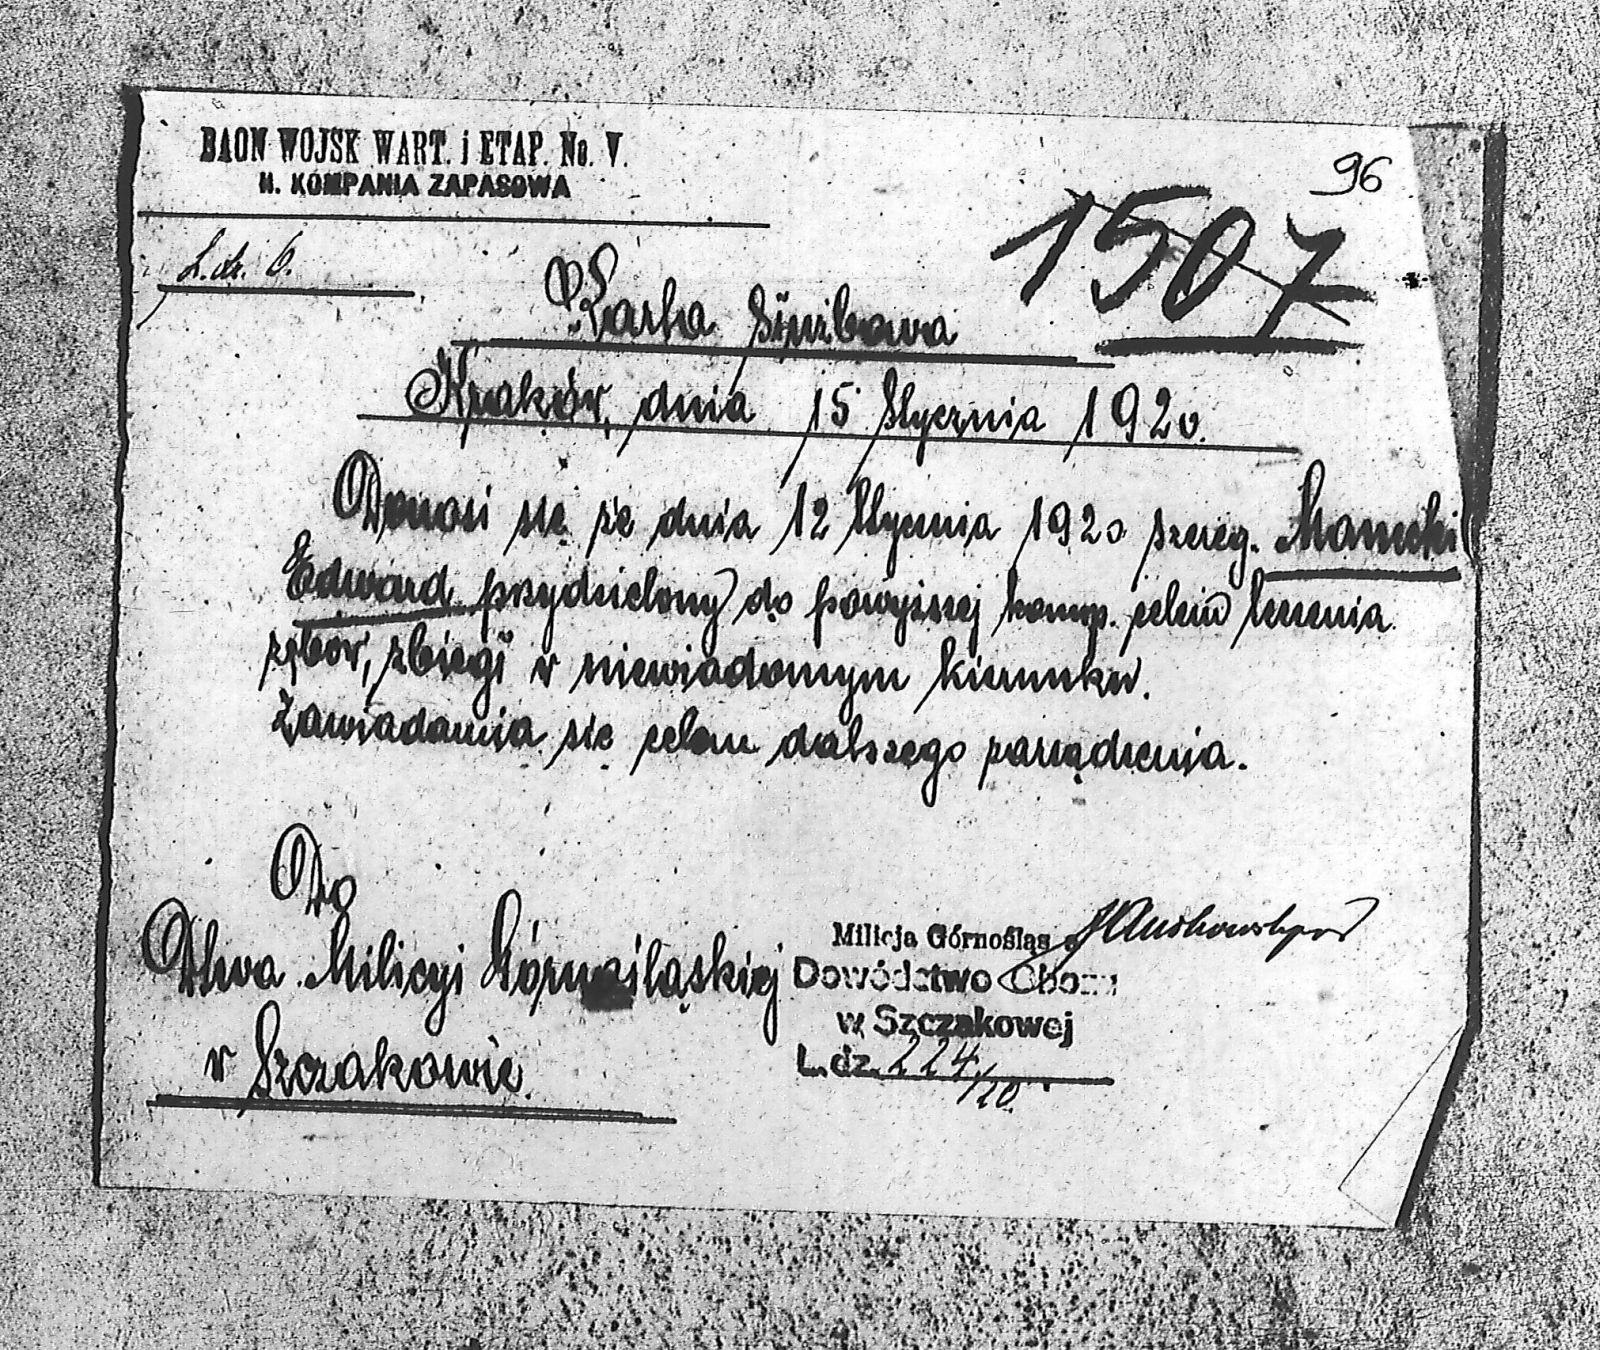 BAON WOJSK WART. i ETAP. No. V.
II. KOMPANIA ZAPASOWA
96
1507
L. dz. 6.
Karta służbowa
Kraków, dnia 15 Stycznia 1920.
Donosi się że dnia 12 Stycznia 1920 szereg.
Edward przydzielony do powyższej komp. celem leczenia
zębów, zbiegł w niewiadomym kierunku.
Zawiadamia się celem dalszego zarządzenia.
Do
Dtwa Milicyi Górnośląskiej
w Szczakowie
Milicja Górnośląs
Dowództwo Obozu
w Szczakowej
L. dz. 224/20